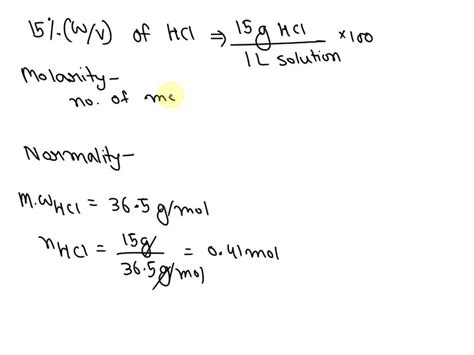 15%(W/V) of HCl ⇒ 15g HCl / 1L solution × 100
Molarity-
no. of mo
Normality-
M.W HCl = 36.5 g/mol
n HCl = 15g / 36.5 g/mol = 0.41 mol